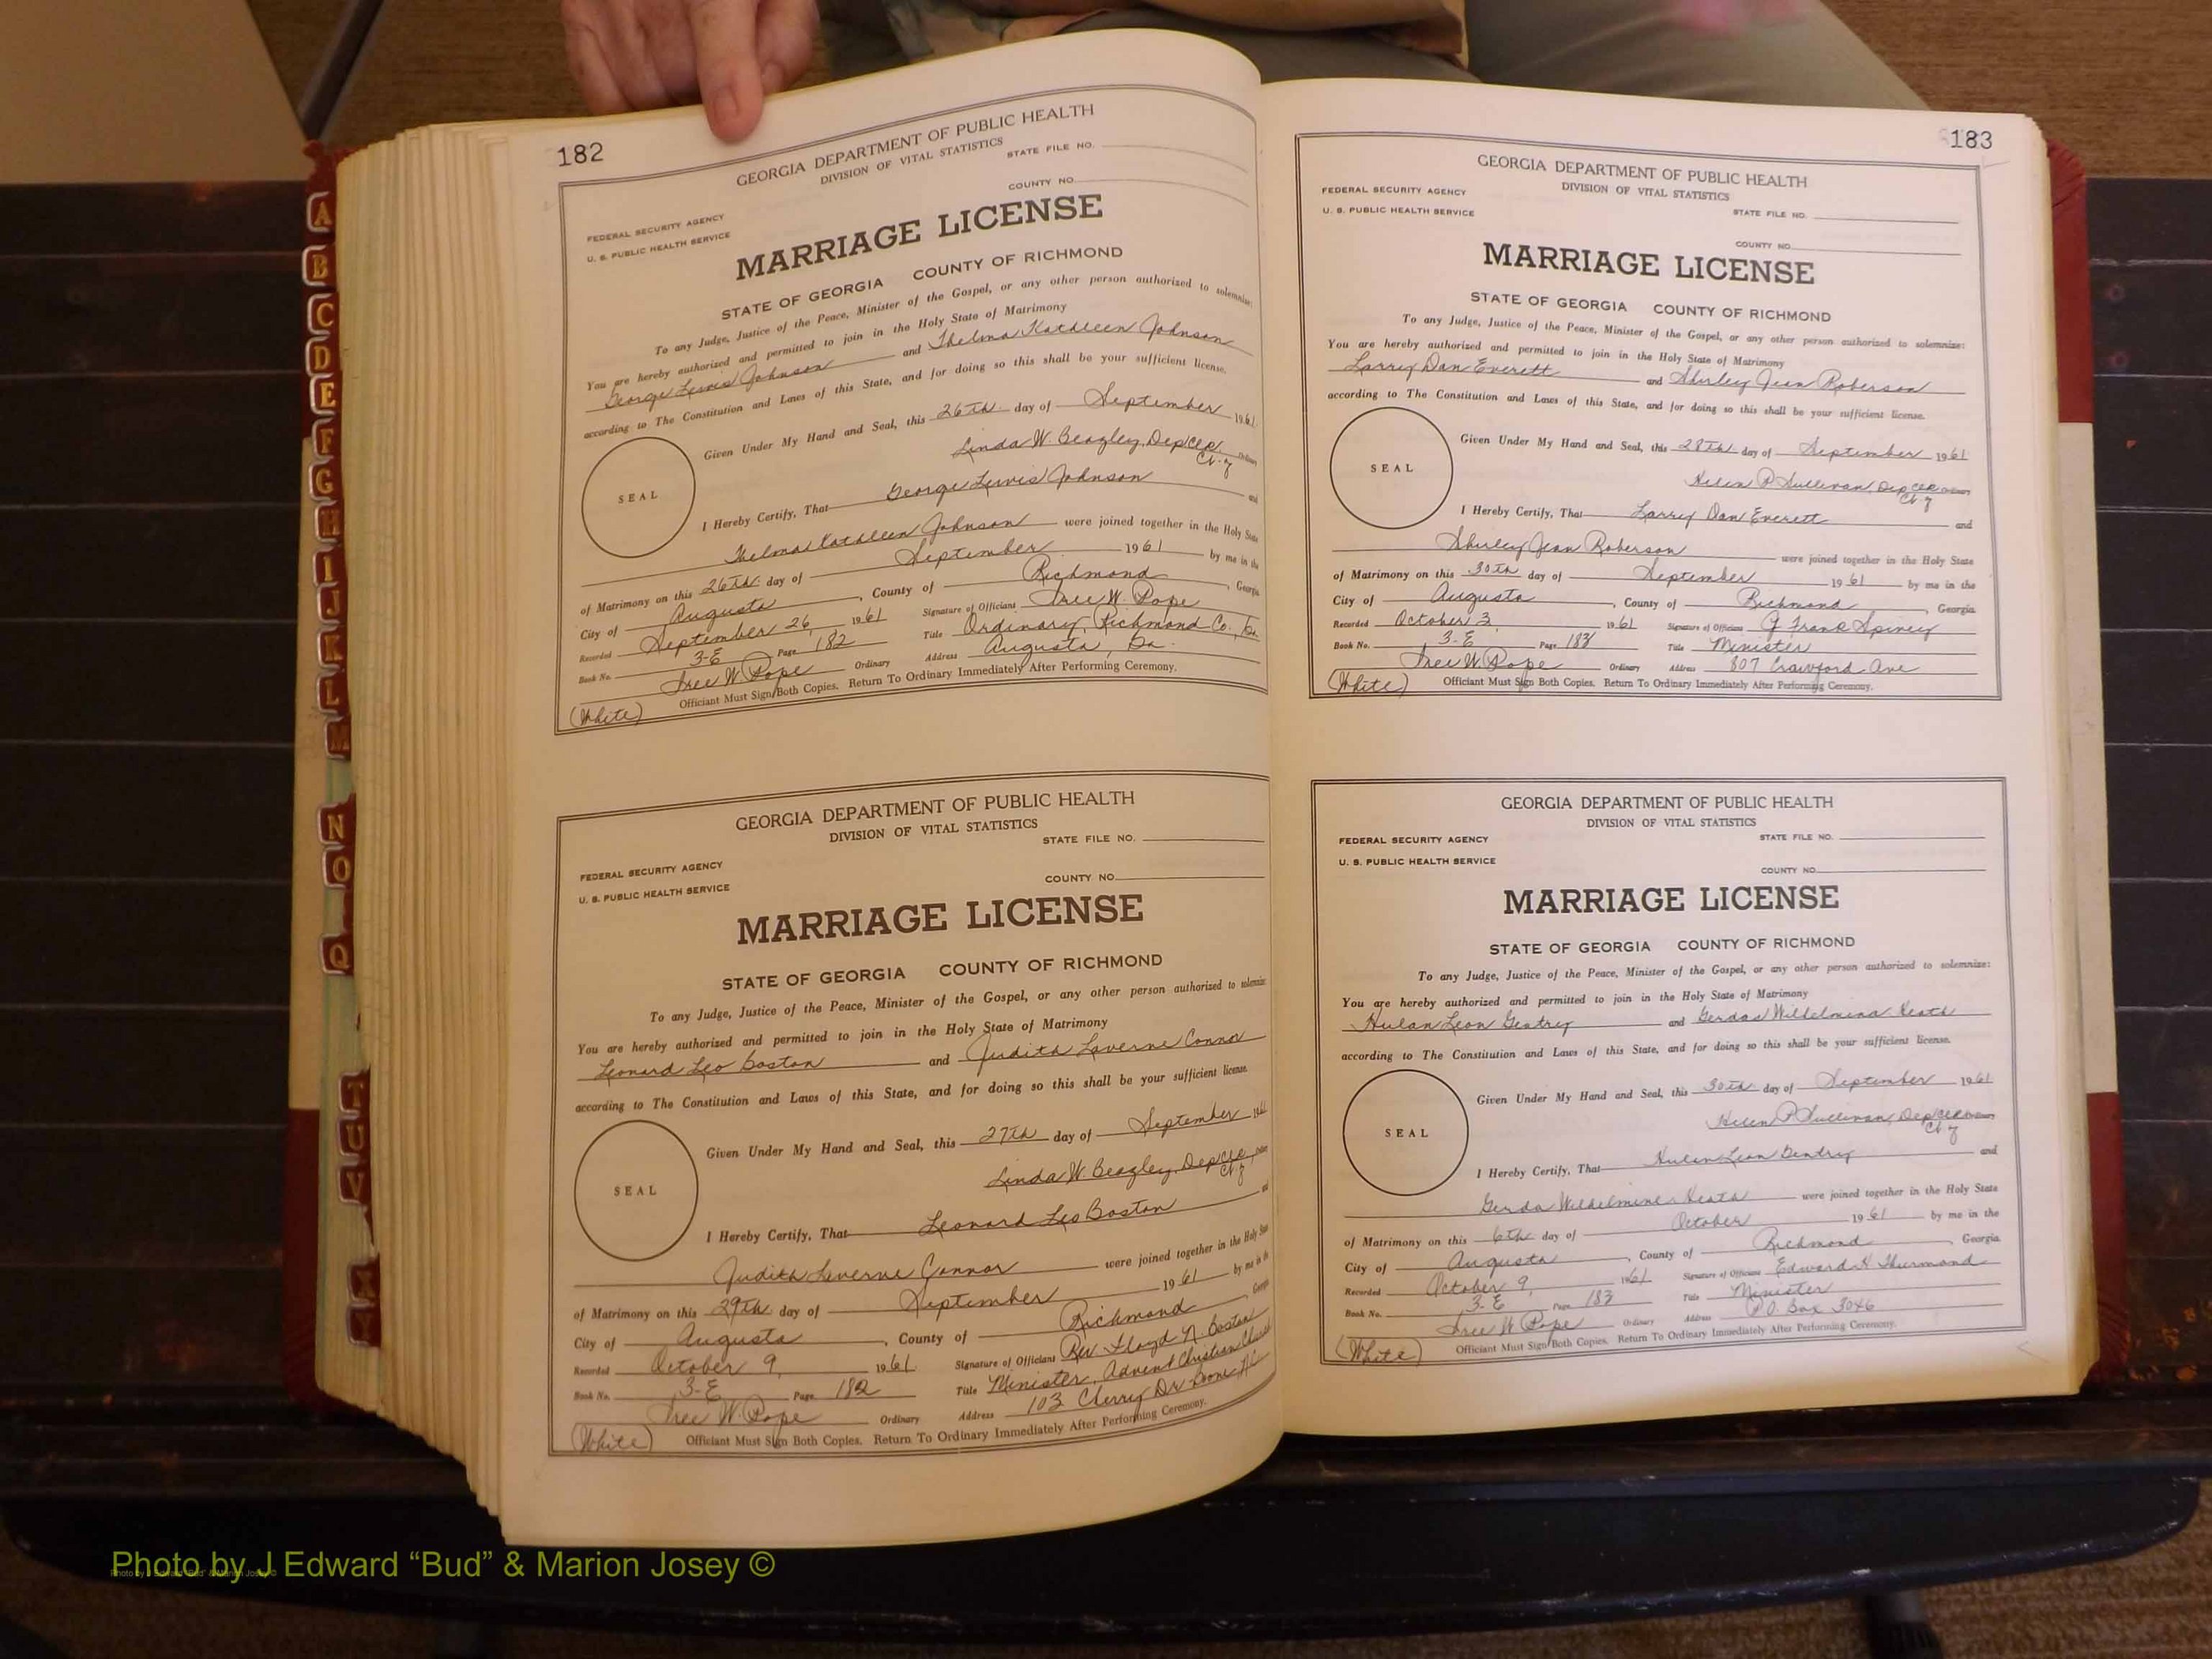 182
GEORGIA DEPARTMENT OF PUBLIC HEALTH
DIVISION OF VITAL STATISTICS
STATE FILE NO.
COUNTY NO.
FEDERAL SECURITY AGENCY
U. S. PUBLIC HEALTH SERVICE
MARRIAGE LICENSE
STATE OF GEORGIA COUNTY OF RICHMOND
To any Judge, Justice of the Peace, Minister of the Gospel, or any other person authorized to solemnize:
You are hereby authorized and permitted to join in the Holy State of Matrimony
George Lewis Johnson and Thelma Kathleen Johnson
according to The Constitution and Laws of this State, and for doing so this shall be your sufficient license.
Given Under My Hand and Seal, this 26th day of September 1961
Linda W. Beazley, Dep Clk Ordinary
SEAL
I Hereby Certify, That George Lewis Johnson and
Thelma Kathleen Johnson were joined together in the Holy State
of Matrimony on this 26th day of September 1961 by me in the
City of Augusta, County of Richmond, Georgia
Recorded September 26, 1961 Signature of Officiant Free W. Pope
Book No. 3-E Page 182 Title Ordinary, Richmond Co., Ga.
Free W Pope Ordinary Address Augusta, Ga.
Officiant Must Sign Both Copies. Return To Ordinary Immediately After Performing Ceremony.
(White)
GEORGIA DEPARTMENT OF PUBLIC HEALTH
DIVISION OF VITAL STATISTICS
STATE FILE NO.
FEDERAL SECURITY AGENCY
COUNTY NO.
U. S. PUBLIC HEALTH SERVICE
MARRIAGE LICENSE
STATE OF GEORGIA COUNTY OF RICHMOND
To any Judge, Justice of the Peace, Minister of the Gospel, or any other person authorized to solemnize
You are hereby authorized and permitted to join in the Holy State of Matrimony
Leonard Leo Boston and Judith Laverne Connor
according to The Constitution and Laws of this State, and for doing so this shall be your sufficient license.
Given Under My Hand and Seal, this 27th day of September 1961
Linda W Beazley, Dep Clk
SEAL
I Hereby Certify, That Leonard Leo Boston and
Judith Laverne Connor were joined together in the Holy State
of Matrimony on this 29th day of September 1961 by me in the
City of Augusta, County of Richmond, Georgia
Recorded October 9, 1961 Signature of Officiant Rev Floyd N. Boston
Book No. 3-E Page 182 Title Minister, Advent Christian Church
Free W. Pope Ordinary Address 103 Cherry Dr Boone NC
(White) Officiant Must Sign Both Copies. Return To Ordinary Immediately After Performing Ceremony.
183
GEORGIA DEPARTMENT OF PUBLIC HEALTH
DIVISION OF VITAL STATISTICS
FEDERAL SECURITY AGENCY
U. S. PUBLIC HEALTH SERVICE
STATE FILE NO.
COUNTY NO.
MARRIAGE LICENSE
STATE OF GEORGIA COUNTY OF RICHMOND
To any Judge, Justice of the Peace, Minister of the Gospel, or any other person authorized to solemnize:
You are hereby authorized and permitted to join in the Holy State of Matrimony
Larry Dan Everett and Shirley Jean Roberson
according to The Constitution and Laws of this State, and for doing so this shall be your sufficient license.
Given Under My Hand and Seal, this 28th day of September 1961
Helen P Sullivan, Dep Clk Ordinary
SEAL
I Hereby Certify, That Larry Dan Everett and
Shirley Jean Roberson were joined together in the Holy State
of Matrimony on this 30th day of September 1961 by me in the
City of Augusta, County of Richmond, Georgia
Recorded October 3, 1961 Signature of Officiant G Frank Spivey
Book No. 3-E Page 183 Title Minister
Free W. Pope Ordinary Address 807 Crawford Ave
(White) Officiant Must Sign Both Copies. Return To Ordinary Immediately After Performing Ceremony.
GEORGIA DEPARTMENT OF PUBLIC HEALTH
DIVISION OF VITAL STATISTICS
FEDERAL SECURITY AGENCY
STATE FILE NO.
U. S. PUBLIC HEALTH SERVICE
COUNTY NO.
MARRIAGE LICENSE
STATE OF GEORGIA COUNTY OF RICHMOND
To any Judge, Justice of the Peace, Minister of the Gospel, or any other person authorized to solemnize:
You are hereby authorized and permitted to join in the Holy State of Matrimony
Hulan Leon Gentry and Gerda Wilhelmina Heath
according to The Constitution and Laws of this State, and for doing so this shall be your sufficient license.
Given Under My Hand and Seal, this 30th day of September 1961
Helen P Sullivan, Dep Clk Ordinary
SEAL
I Hereby Certify, That Hulan Leon Gentry and
Gerda Wilhelmina Heath were joined together in the Holy State
of Matrimony on this 6th day of October 1961 by me in the
City of Augusta, County of Richmond, Georgia
Recorded October 9, 1961 Signature of Officiant Edward H Thurmond
Book No. 3-E Page 183 Title Minister
Free W Pope Ordinary Address P.O. Box 3046
(White) Officiant Must Sign Both Copies. Return To Ordinary Immediately After Performing Ceremony.
A
B
C
D
E
F
G
H
I
J
K
L
M
N
O
Q
T
U
V
Photo by J Edward “Bud” & Marion Josey ©
Photo by J Edward "Bud" & Marion Josey ©